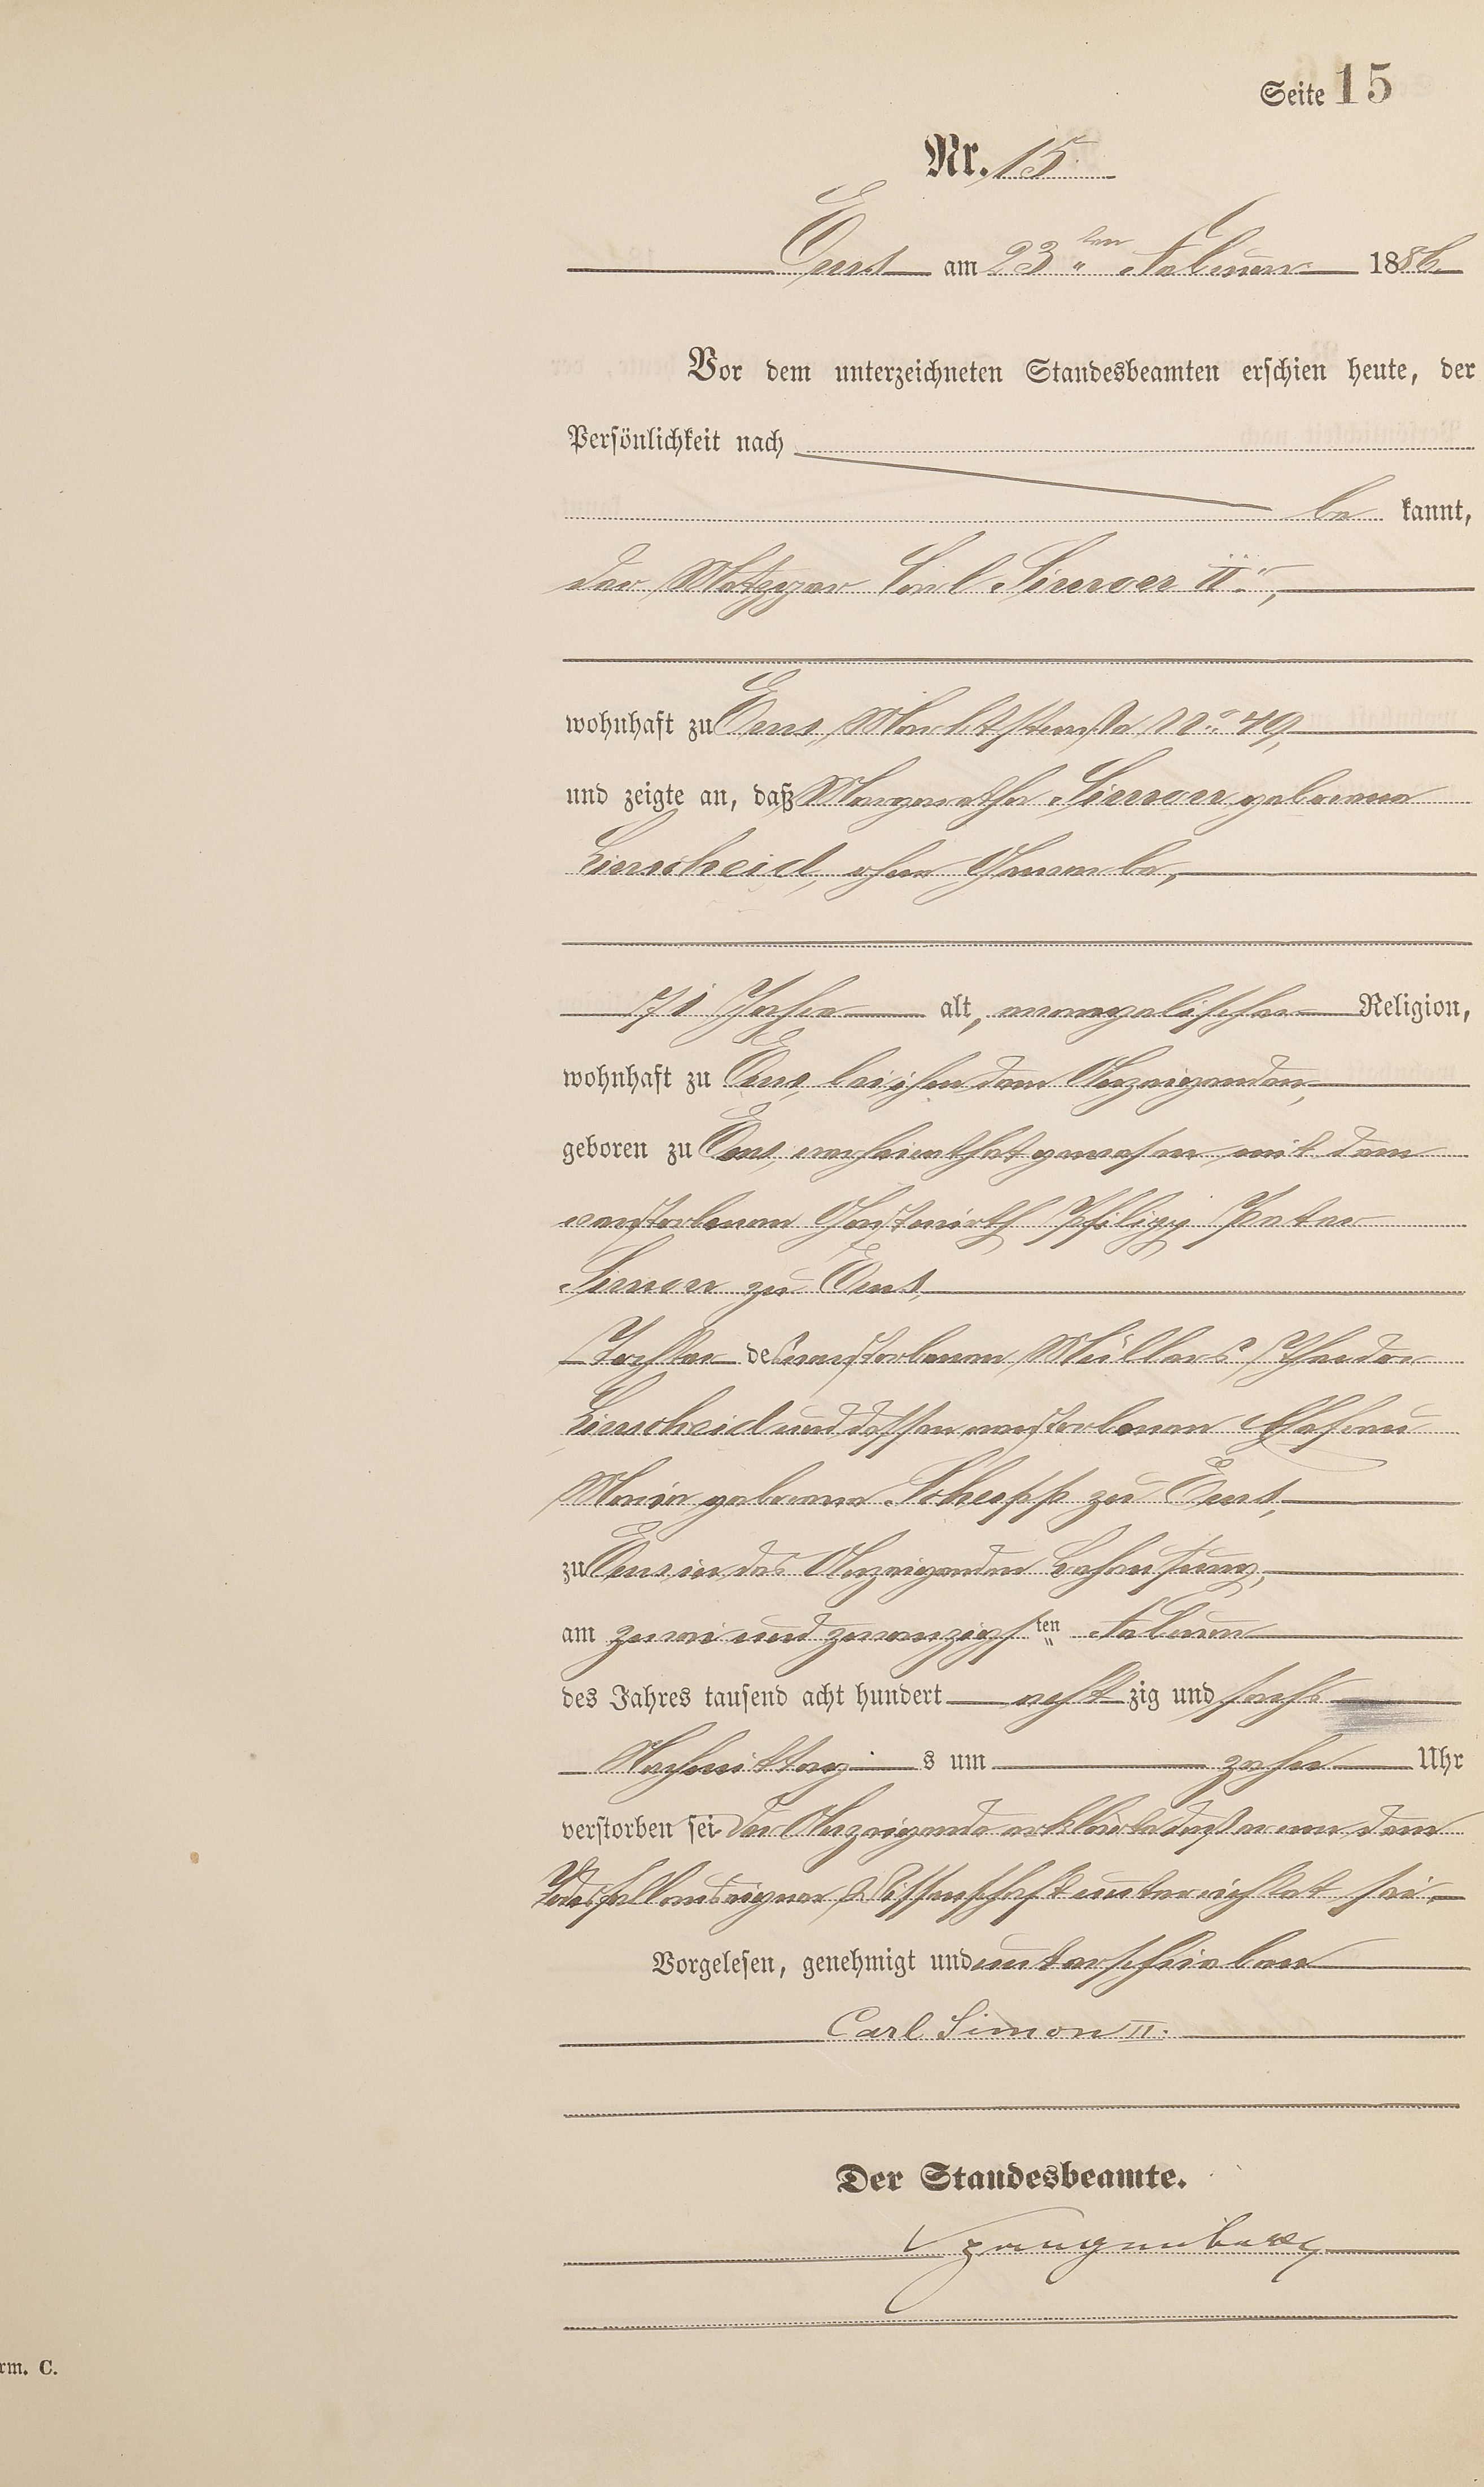 Seite 15
Nr. 15.
Ems am 23ten Februar 1886.
Vor dem unterzeichneten Standesbeamten erschien heute, der
Persönlichkeit nach
be kannt,
der Metzger Carl Simon IIr,
wohnhaft zu Ems, Marktstraße No. 49,
und zeigte an, daß Margarethe Simon geborene
Linscheid, ohne Gewerbe,
71 Jahre alt, evangelischer Religion,
wohnhaft zu Ems, bei ihm dem Anzeigenden,
geboren zu Ems, verheirathet gewesen mit dem
verstorbenen Gastwirth Philipp Peter
Simon zu Ems,
Tochter des verstorbenen Müllers
Linscheid und dessen verstorbenen Ehefrau
Maria geborene Schupp zu Ems,
zu Ems in des Anzeigenden Behausung,
am zwei und zwanzigsten Februar
des Jahres tausend acht hundert acht zig und sechs
Nachmittag s um zehn Uhr
verstorben sei. Der Anzeigende erklärte daß er von dem
Todesfall aus eigener Wissenschaft unterrichtet sei.
Vorgelesen, genehmigt und unterschrieben
Carl Simon II.
Der Standesbeamte.
Spangenberg
rm. C.